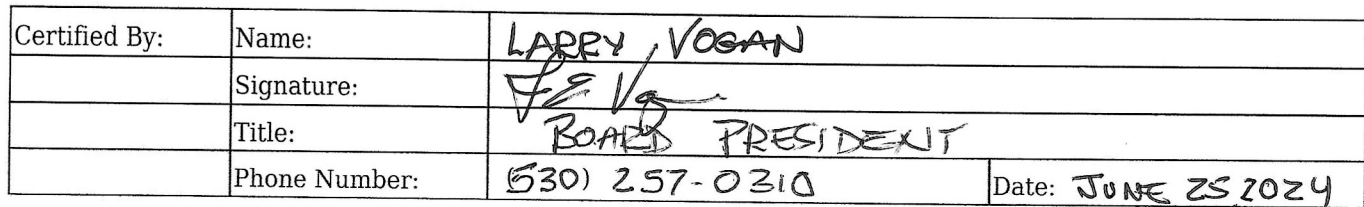 Certified By: Name: LARRY VOGAN
Signature:
Title: BOARD PRESIDENT
Phone Number: (530) 257-0310 Date: JUNE 25 2024